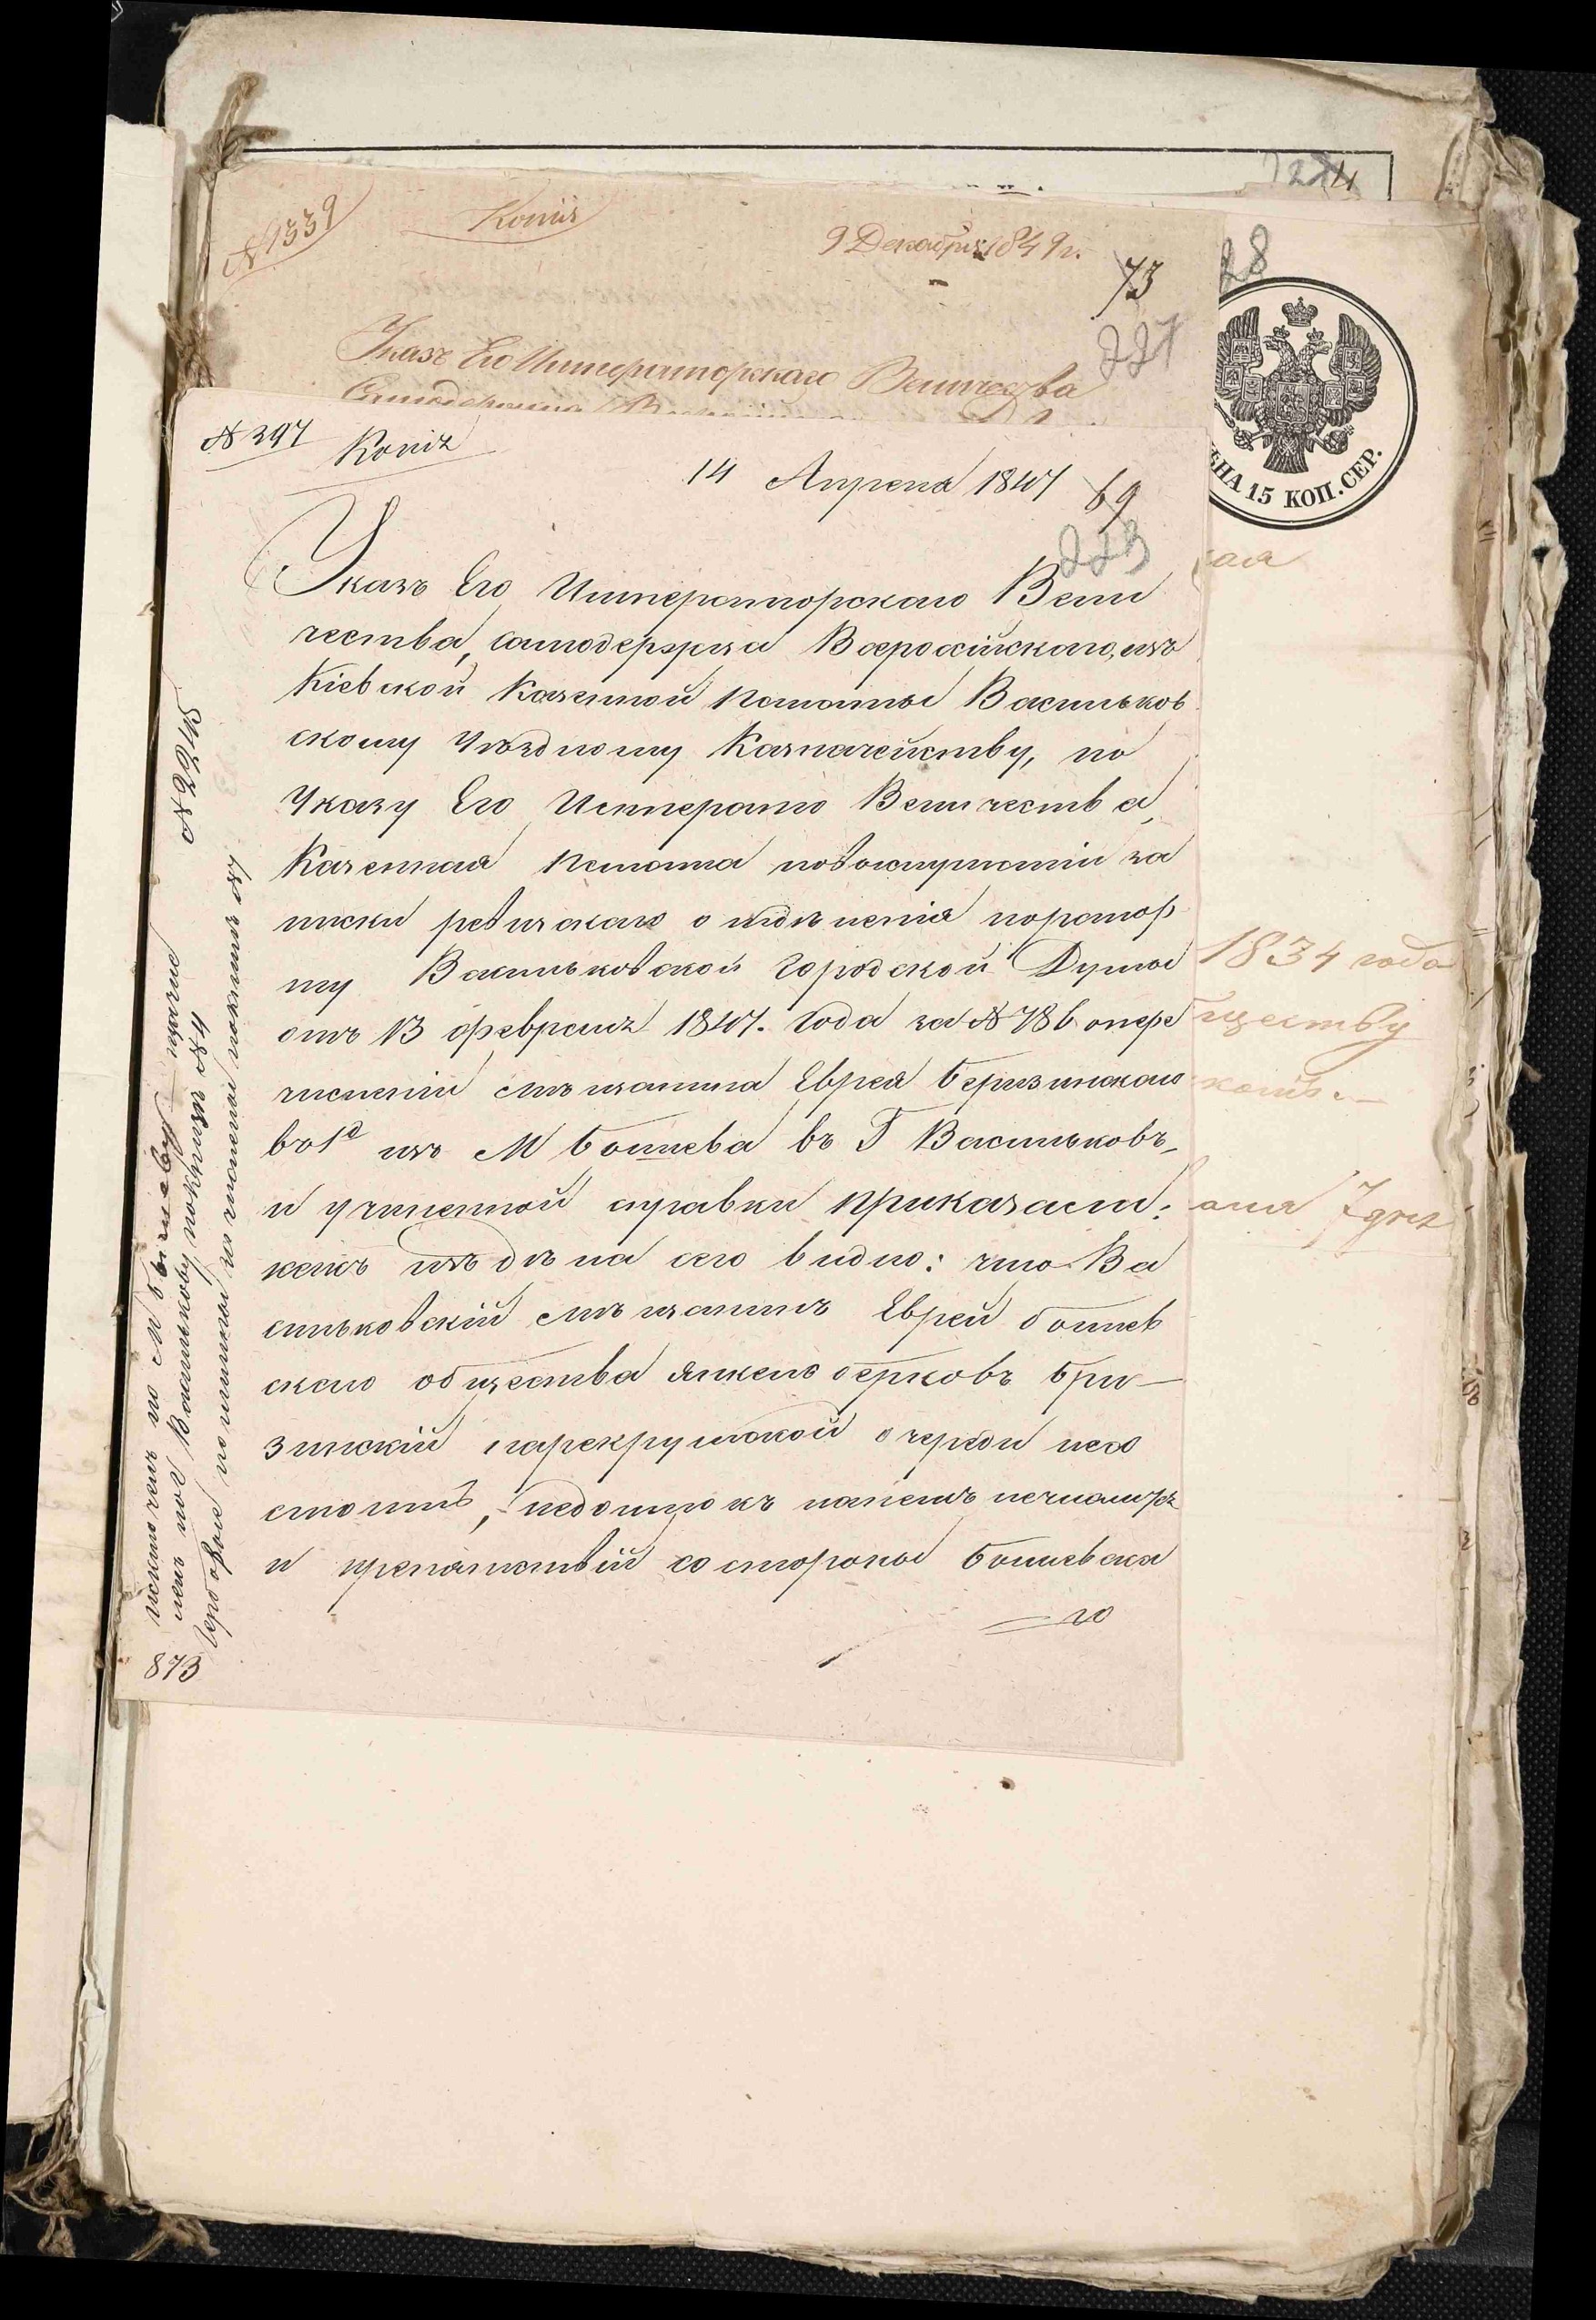 224
№ 1339
Копія
9 Декабря 1849 г.
73
227
28
Указъ Его Императорскаго Величества
ЦЕНА 15 КОП. СЕР.
№ 397
Копія
14 Апреля 1847
69
223
Указъ Его Императорскаго Вели
чества, самодержца Всеросійскаго, изъ
Кіевской Казенной Палаты Васильков
скому Уѣздному Казначейству, по
Указу Его Императо Величества,
Казенная Палата повыслушаніи за
писки ревизскаго отдѣленія порапор
ту Васильковской Городской Думы
отъ 13 февраля 1847. Года за № 786 опере
численіи мѣщанина Еврея Беризинскаго
въ 1й изъ М Бышева въ Г Васильковъ,
и учиненной справки приказали:
какъ изъ дѣла сего видно: что Ва
сильковскій мѣщанинъ Еврей бышев
скаго общества Янкель берковъ Бри-
зинскій нарекрутской очереди не со
стоитъ, недоимокъ нанемъ нечислится
и препятствій со стороны Бышевска
го
1834 года
ществу
№ 2245
исключенъ по М Бышеву
ленъ по г Василькову покнигѣ № 4
873